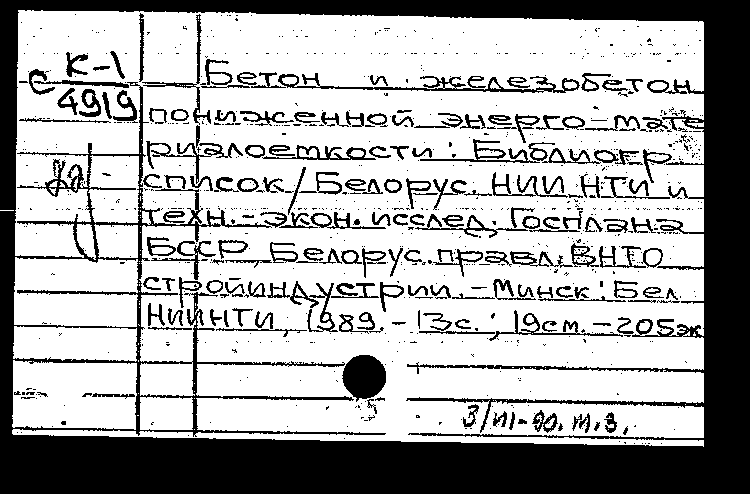 С К-1
4919
Бетон и железобетон
пониженной энерго-мате
риалоемкости: Библиогр.
список/Белорус. НИИ НТИ и
техн.-экон. исслед. Госплана
БССР, Белорус. правл. ВНТО
стройиндустрии.-Минск: Бел
НИИНТИ, 1989.-13с.; 19см.-205эк
3/VII-90. т.з.